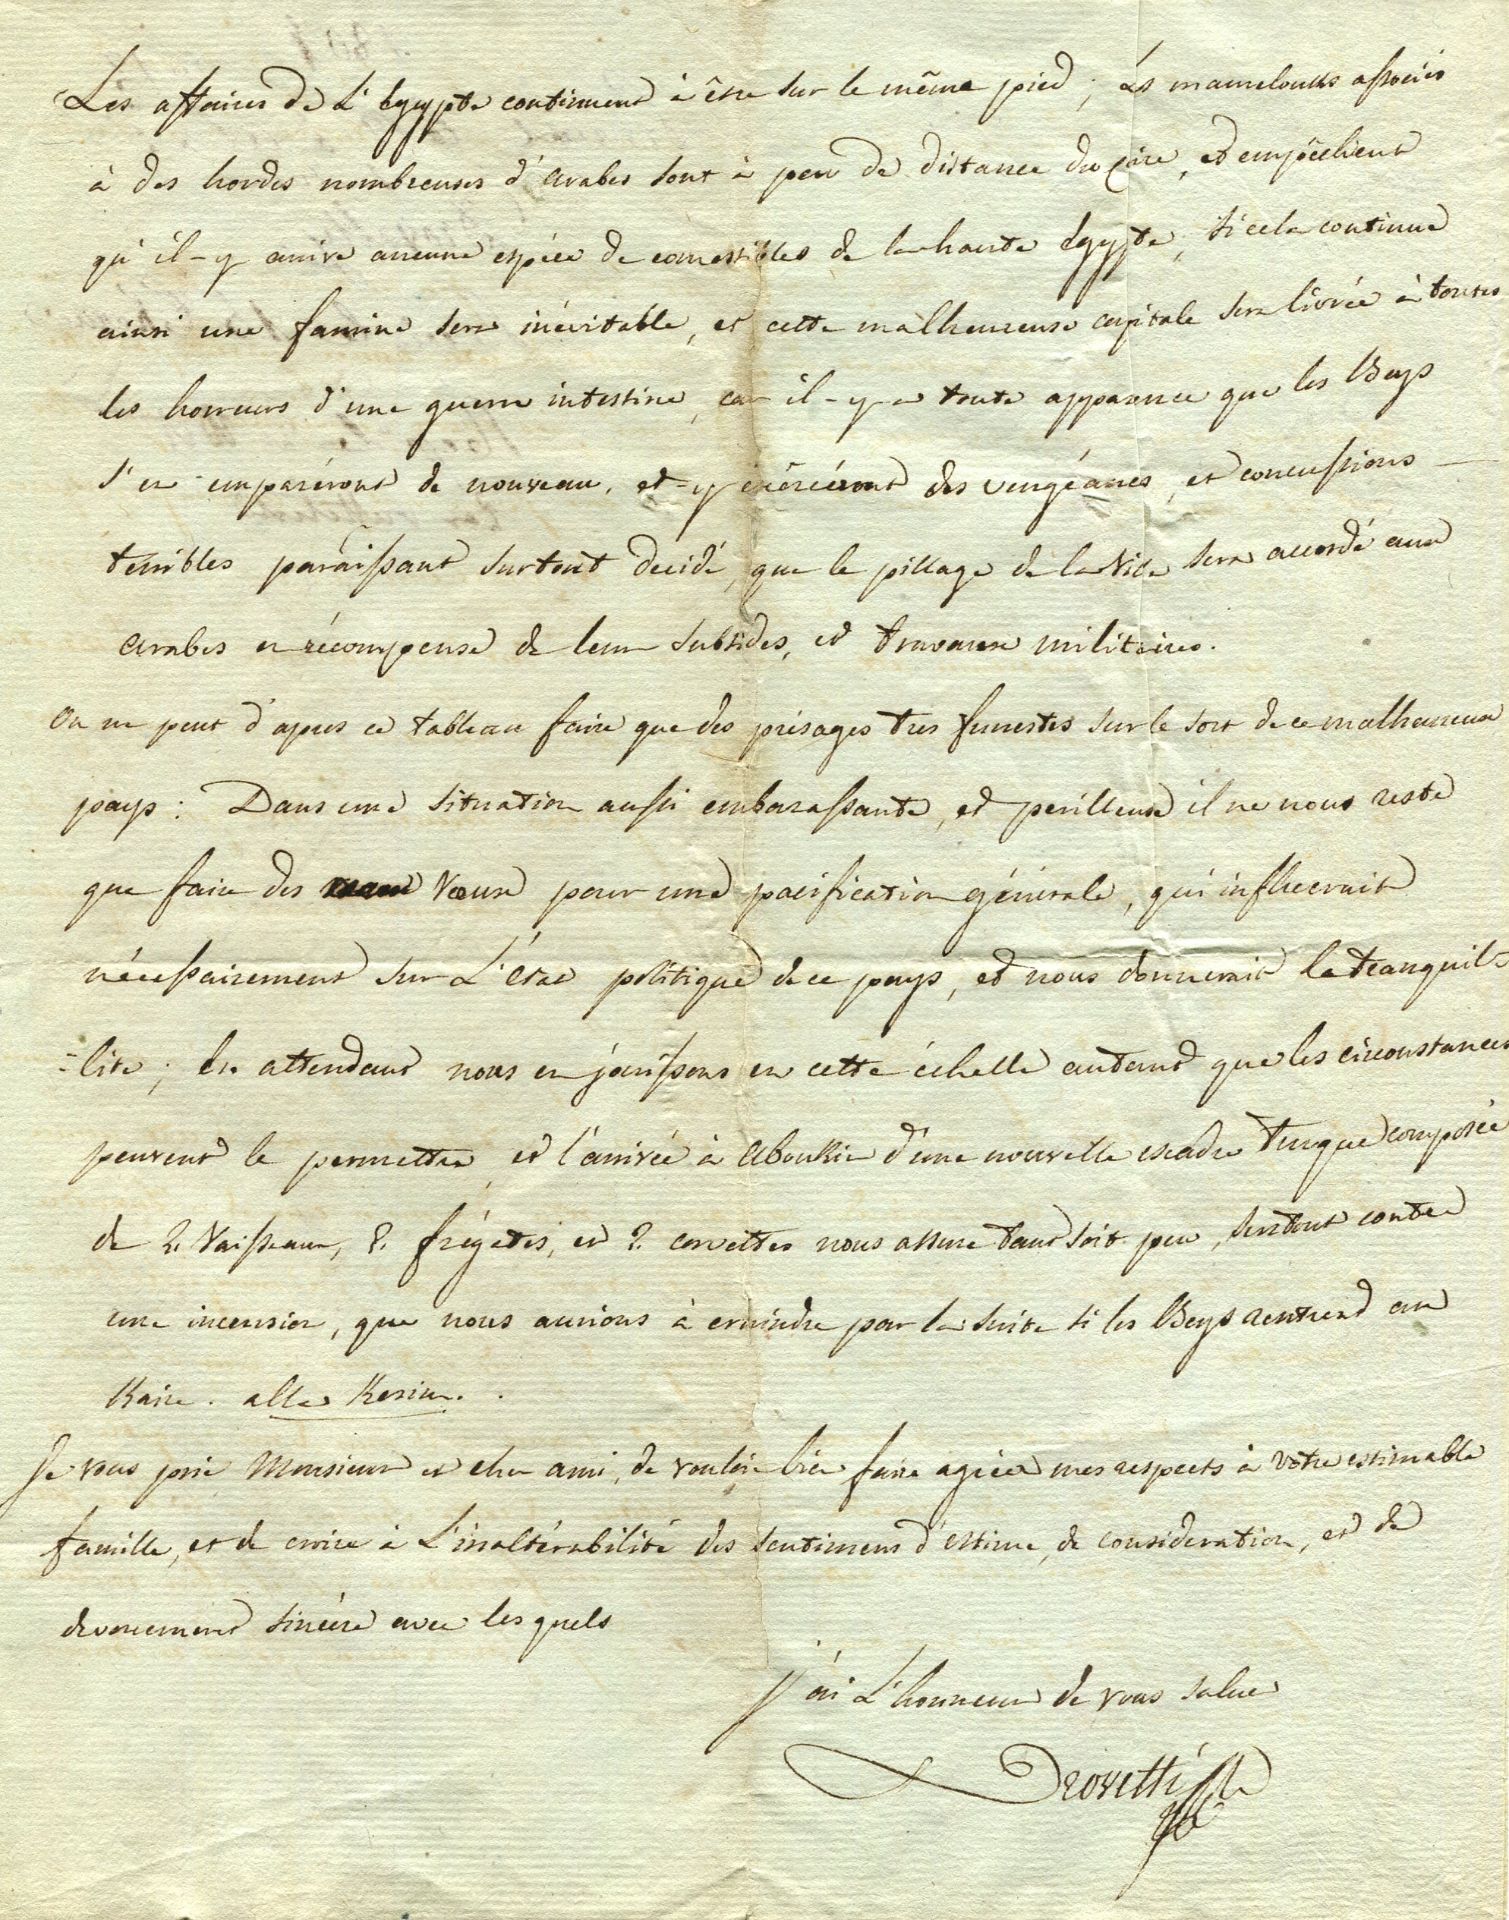 Les affaires de L'Egypte continuent à être sur le même pied ; Les mamelouks associés
à des hordes nombreuses d'arabes sont à peu de distance du Caire, et empêchent
qu'il-y arrive aucune espéce de comestibles de la haute Egypte, si cela continue
ainsi une famine sera inévitable, et cette malheureuse capitale sera livrée à toutes
les horreurs d'une guerre intestine, car il-y-a toute apparence que les Beys
s'en empareront de nouveau, et-y exerceront des vengéances, et concussions
terribles paraissant surtout decidé, que le pillage de la Ville sera accordé aux
arabes en récompense de leur subsides, et travaux militaires.
On ne peut d'apres ce tableau faire que des présages tres funestes sur le sort de ce malheureux
pays : Dans une situation aussi embarassante, et perilleuse il ne nous reste
que faire des vœux pour une pacification générale, qui influerait
nécessairement sur L'état politique de ce pays, et nous donnerait la tranquil-
-lité ; En attendant nous en jouissons en cette échelle autant que les circonstances
peuvent le permettre, et l'arrivée à Aboukir d'une nouvelle escadre Turque composée
de 2. Vaisseaux, 2. frégates, et 2. corvettes nous assure tant soit peu, surtout contre
une incursion, que nous aurions à craindre par la suite si les Beys rentrent au
Kaire. alla Kerim.
Je vous prie Monsieur et cher ami, de vouloir bien faire agréer mes respects à votre estimable
famille, et de croire à L'inaltérabilité des sentimens d'estime, de consideration, et de
devouement sincére avec les quels
j'ai L'honneur de vous saluer
Drovetti